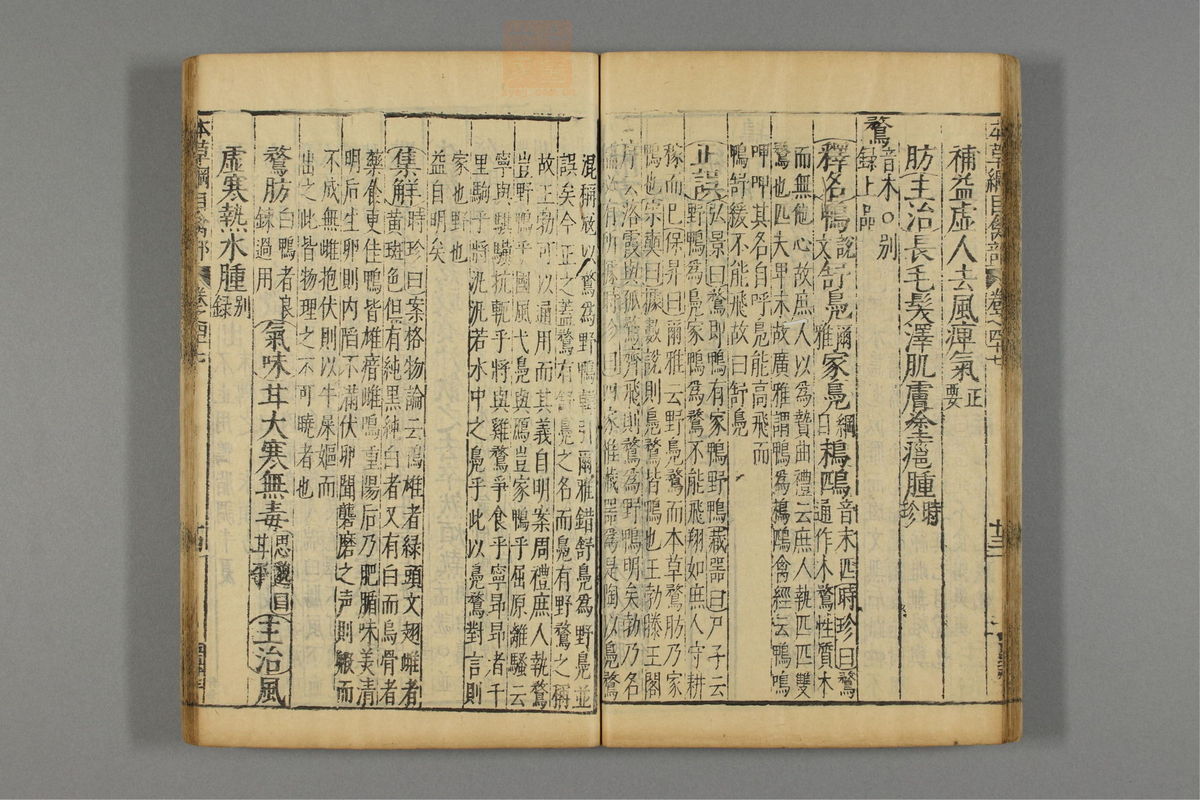 補益虛人去風痺氣正要
肪主治長毛髮澤肌膚塗癰腫時珍
鶩音木○别録上品
釋名鴨說文舒鳧爾雅家鳧綱目䳱鴄音末匹時珍曰鶩通作木鶩性質木
而無他心故庶人以為贄曲禮云庶人執匹匹雙
鶩也匹夫卑末故廣雅謂鴨為䳱鴄禽經云鴨鳴
呷呷其名自呼鳧能高飛而
鴨舒緩不能飛故曰舒鳧
正誤弘景曰鶩即鴨有家鴨野鴨藏器曰尸子云
野鴨為鳧家鴨為鶩不能飛翔如庶人守耕
稼而已保昇曰爾雅云野鳧鶩而本草鶩肪乃家
鴨也宗奭曰據數說則鳧鶩皆鴨也王勃滕王閣
序云落霞與孤鶩齊飛則鶩為野鴨明矣勃乃名
儒必有所據時珍曰四家惟藏器為是陶以鳧鶩
混稱寇以鶩為野鴨韓引爾雅錯舒鳧為野鳧並
誤矣今正之蓋鶩有舒鳧之名而鳧有野鶩之稱
故王勃可以通用而其義自明案周禮庶人執鶩
豈野鴨乎國風弋鳧與鴈豈家鴨乎屈原離騷云
寧與騏驥抗軛乎將與雞鶩爭食乎寧昂昂者千
里駒乎將汎汎若水中之鳧乎此以鳧鶩對言則
家也野也
益自明矣
集解時珍曰案格物論云鴨雄者綠頭文翅雌者
黃斑色但有純黑純白者又有白而烏骨者
藥食更佳鴨皆雄瘖雌鳴重陽后乃肥腯味美清
明后生卵則内䧟不滿伏卵聞礱磨之声則毈而
不成無雌抱伏則以牛屎嫗而
出之此皆物理之不可曉者也
鶩肪白鴨者良錬過用氣味甘大寒無毒思邈曰甘平主治風
虛寒熱水腫别録